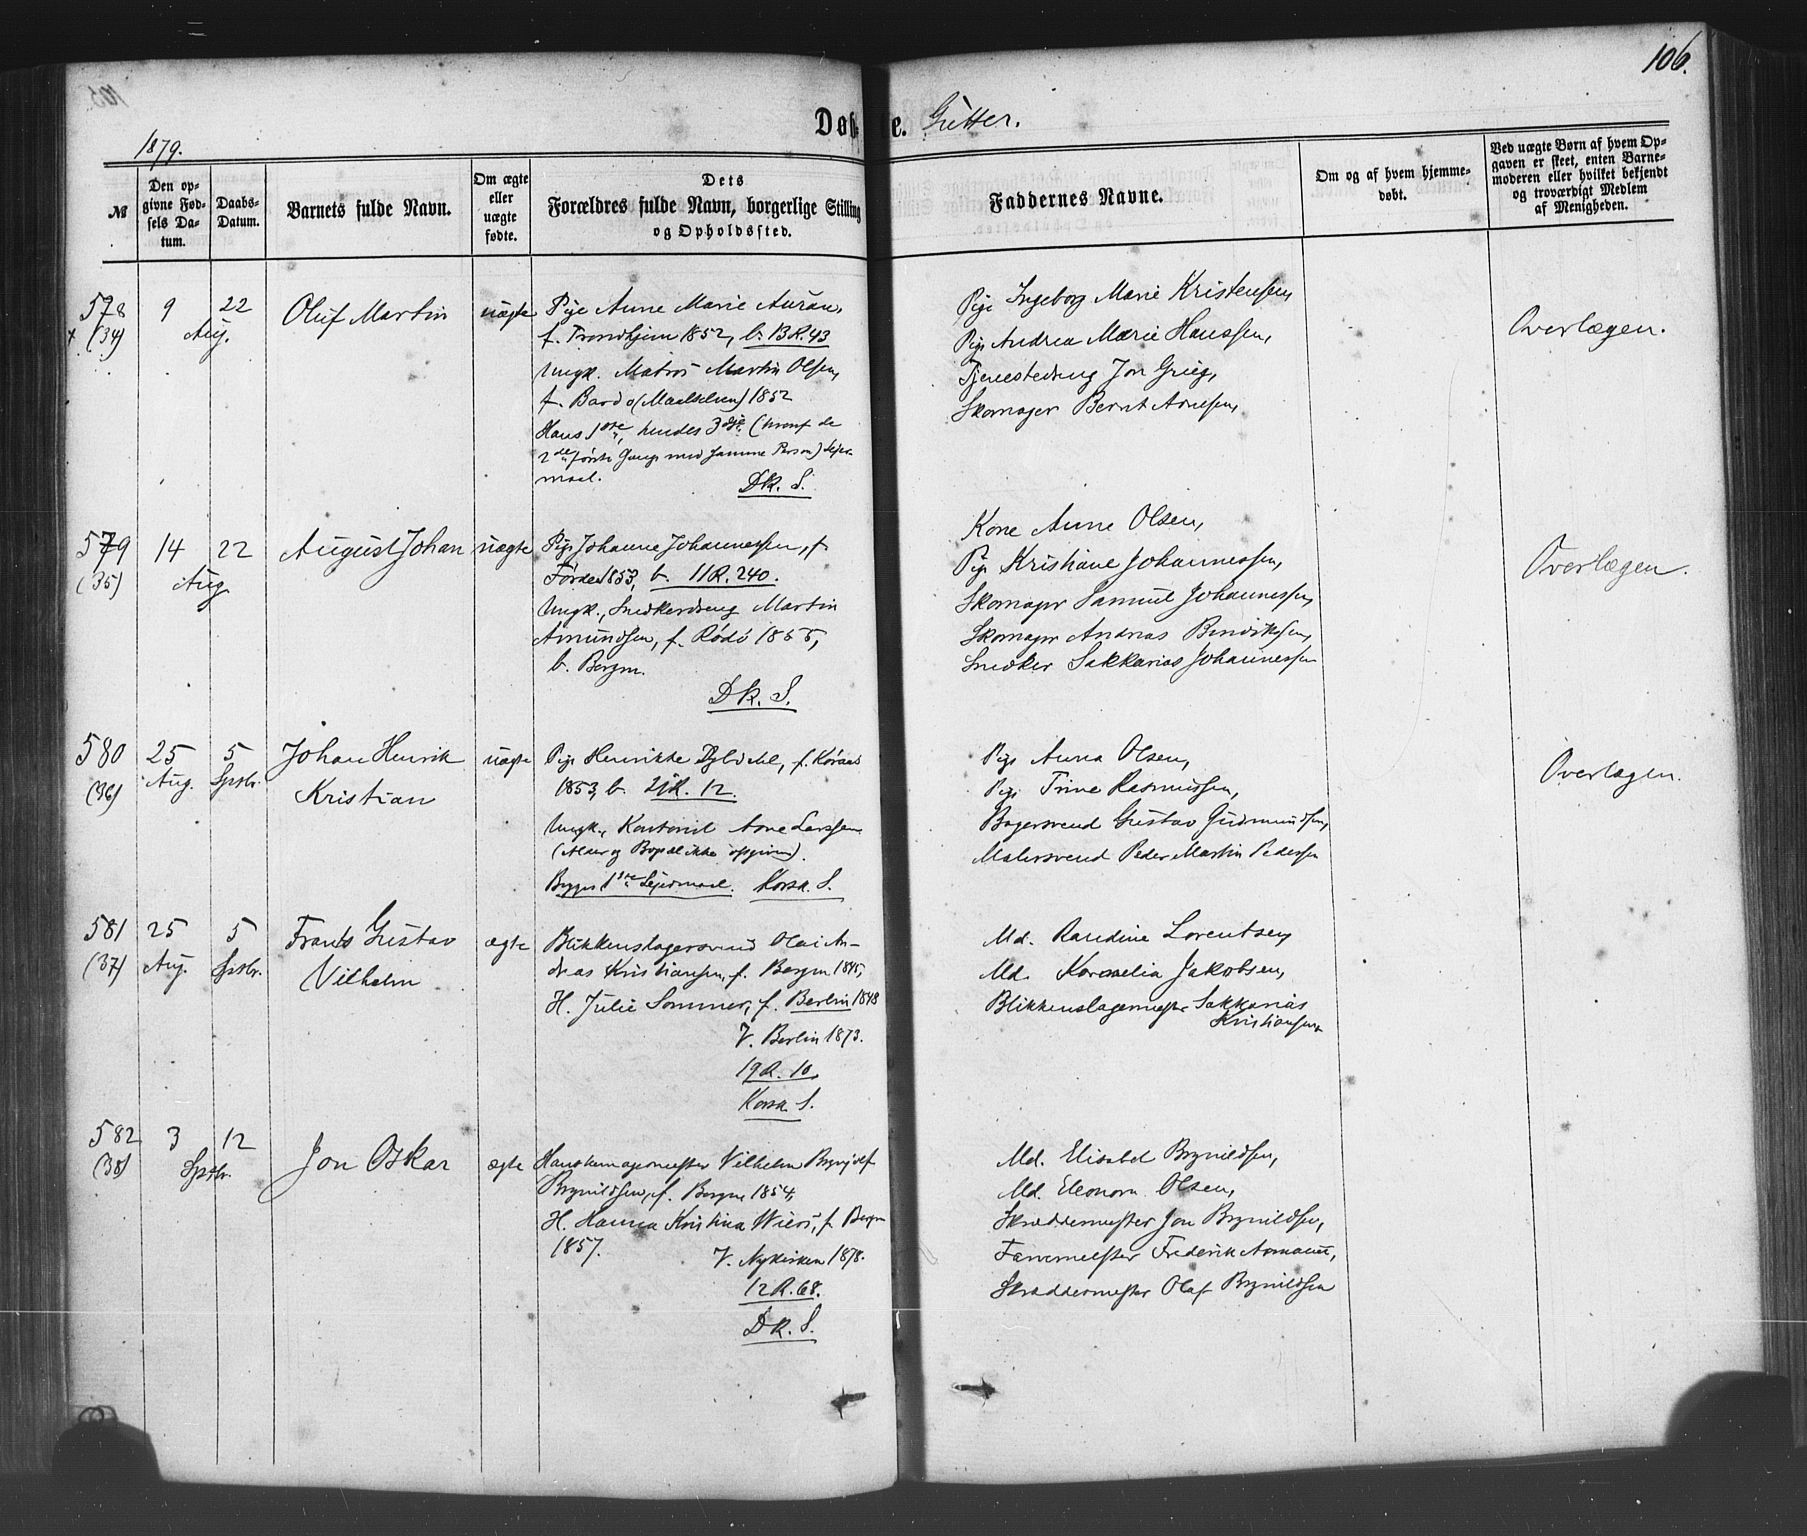 106.
1879.
Døbte. Gutter.
№
Den opgivne Fødsels Datum.
Daabs-Datum.
Barnets fulde Navn.
Om ægte eller uægte fødte.
Dets Forældres fulde Navn, borgerlige Stilling og Opholdssted.
Faddernes Navne.
Om og af hvem hjemmedøbt.
Ved uægte Børn af hvem Opgaven er skeet, enten Barnemoderen eller hvilket bekjendt og troværdigt Medlem af Menigheden.
578
(34)
9 22
Aug.
Oluf Martin
uægte
Pige Anne Marie Auran,
f. Trondhjem 1852, b. 13 R. 43
Ungk. Matros Martin Olsen,
f. Bardo (Maalselven) 1852
Hans 1ste, hendes 3die (hvoraf de
2de første Gange med samme Person) Leier-
maal.
Dk. S.
Pige Ingeborg Marie Kristensen,
Pige Andrea Marie Hanssen,
Tjenestedreng Jon Grieg,
Skomager Bernt Arnesen,
Overlægen.
579
(35)
14 22
Aug
August Johan
uægte
Pige Johanne Johannessen, f.
Førde 1853, b. 11 R. 240.
Ungk., Snedkerdreng Martin
Amundsen, f. Rødø 1855,
b. Bergen.
Dk. S.
Kone Anne Olsen,
Pige Kristiane Johannessen,
Skomager Samuel Johannessen,
Skomager Andreas Bendiksen,
Snedker Sakkarias Johannessen
Overlægen.
580
(36)
25 Aug.
5 Sptbr.
Johan Henrik
Kristian
uægte
Pige Henrikke f.
1853, b. 21 R. 12.
Ungk., Kontorist Arne Larssen
(Alder og Bopæl ikke opgiven).
Begges 1ste Leiermaal. Korsk. S.
Pige Anna Olsen,
Pige Trine Rasmussen,
Bagersvend Gustav Gudmundsen,
Malersvend Peder Martin Pedersen
Overlægen.
581
(37)
25 Aug.
5 Sptbr.
Frants Gustav
Vilhelm
ægte
Blikkenslagersvend Olai An-
dreas Kristiansen, f. Bergen 1845,
H. Julie Sommer, f. Berlin 1848
V. Berlin 1873.
19 R. 10,
Korsk. S.
Md. Randine Lorentsen,
Md. Kornelia Jakobsen,
Blikkenslagermester Sakkarias
Kristiansen
582
(38)
3 12
Sptbr.
Jon Oskar
ægte
Hanskemagermester Vilhelm Brynjolf
Brynildsen, f. Bergen 1854,
H. Hanna Kristina Wiers, f. Bergen
1857.
V. Nykirken 1878.
12 R. 68.
Dk. S.
Md. Elisabet Brynildsen,
Md. Eleonora Olsen,
Skræddermester Jon Brynildsen,
Farvemester Frederik
Skræddermester Olaf Brynildsen